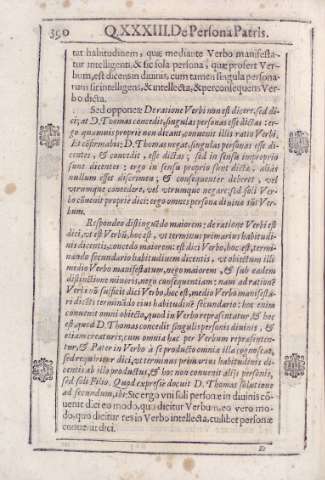 350 Q.XXXIII. De Persona Patris.
tat habitudinem, quæ mediante Verbo manifesta-
tur intelligenti, & sic sola persona, quæ profert Ver-
bum, est dicens in diuinis, cum tamen singula persona-
rum sit intelligens, & intellecta, & per consequens Ver-
bo dicta.
Sed oppones: De ratione Verbi non est dicere, sed di-
ci; at D. Thomas concedit, singulas personas esse dictas: er-
go quamuis propriè non dicant, conuenit illis ratio Verbi.
Et cõfirmatur: D. Thomas negat, singulas personas esse di-
centes, & concedit, esse dictas; sed in sensu improprio
sunt dicentes: ergo in sensu proprio sunt dictæ, aliàs
nullum esset discrimen; & consequenter deberet, vel
vtrumque concedere, vel vtrumque negare: sed soli Ver-
bo cõuenit propriè dici: ergo omnes persona diuina sũt Ver-
bum.
Respondeo distinguẽdo maiorem: de ratione Verbi est
dici, vt est Verbũ, hoc est, vt terminus primarius habitudi-
nis dicentis, concedo maiorem: est dici Verbo, hoc est, termi-
nando secundario habitudinem dicentis, vt obiectum illi
medio Verbo manifestatum, nego maiorem, & sub eadem
distinctione minoris, nego consequentiam: nam ad rationẽ
Verbi nõ sufficit dici Verbo, hoc est, medio Verbo manifesta-
ri dicẽti terminãdo eius habitudinẽ secundario: hoc enim
conuenit omni obiecto, quod in Verbo repræsentatur & hoc
est, quod D. Thomas concedit singulis personis diuinis, &
etiam creaturis, cum omnia hæc per Verbum repræsenten-
tur, & Pater in Verbo à se producto omnia illa cognoscat,
sed requiritur dici, vt terminus primarius habitudinis di-
centis ab illo productus, & hoc non conuenit alijs personis,
sed soli Filio. Quod expressè docuit D. Thomas solutione
ad secundum, ibi: Sic ergo vni soli personæ in diuinis cõ-
uenit dici eo modo, quo dicitur Verbum, eo verò mo-
do, quo dicitur res in Verbo intellecta, cuilibet personæ
conuenit dici.